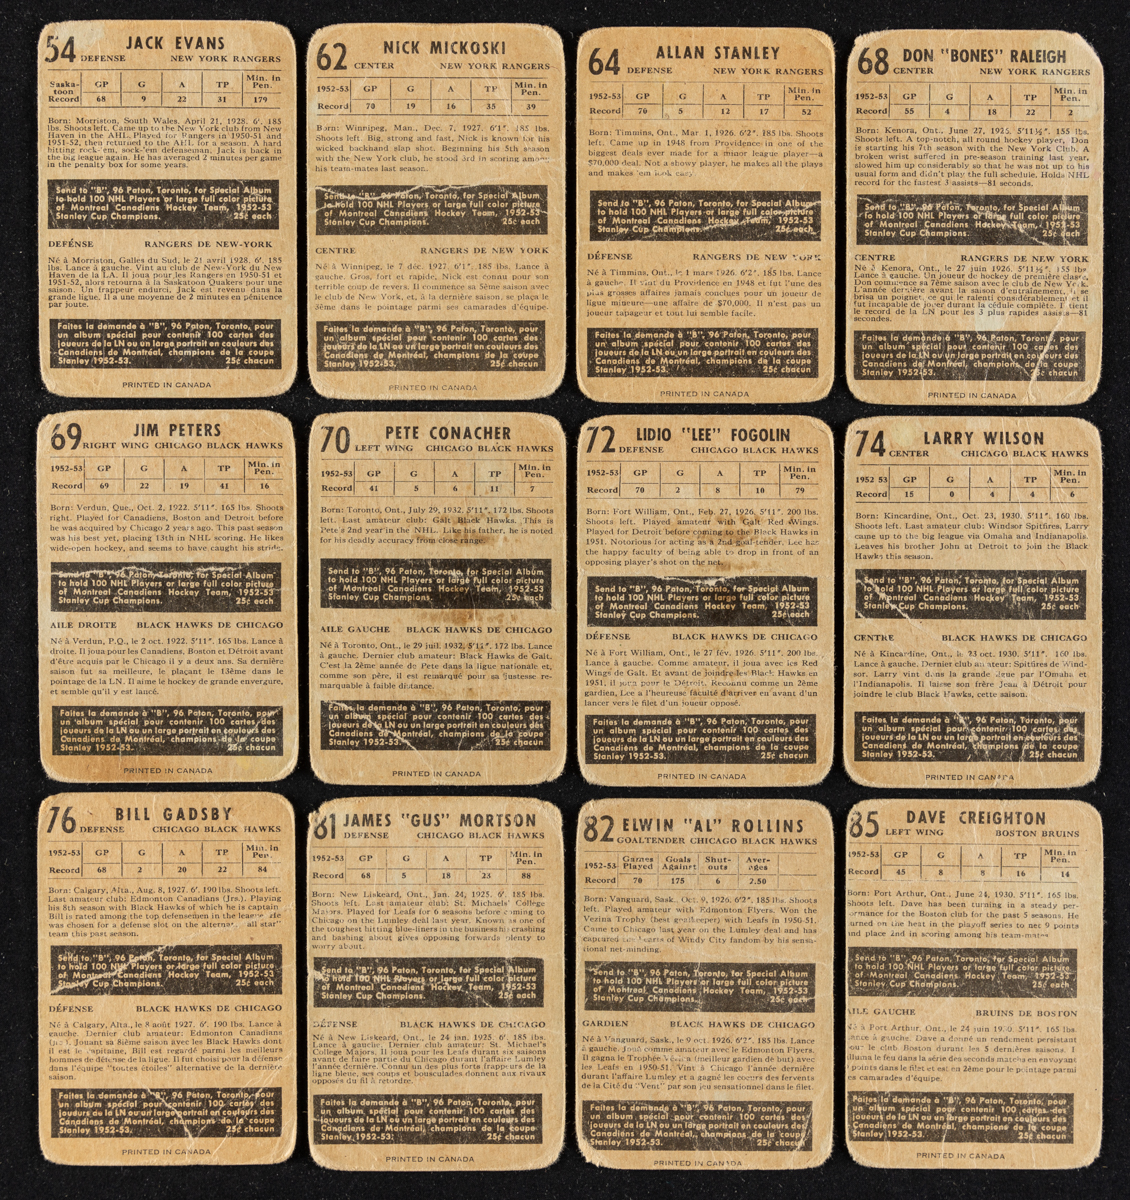 54 JACK EVANS
DEFENSE NEW YORK RANGERS
Saska-
toon
Record GP G A TP Min. in Pen.
68 9 22 31 179
Born: Morriston, South Wales, April 21, 1928. 6', 185
lbs. Shoots left. Came up to the New York club from New
Haven in the AHL. Played for Rangers in 1950-51 and
1951-52, then returned to the AHL for a season. A hard
hitting rock-'em, sock-'em defenseman, Jack is back in
the big league again. He has averaged 2 minutes per game
in the penalty box for some years.
Send to "B", 96 Paton, Toronto, for Special Album
to hold 100 NHL Players or large full color picture
of Montreal Canadiens Hockey Team, 1952-53
Stanley Cup Champions. 25¢ each
DÉFENSE RANGERS DE NEW-YORK
Né à Morriston, Galles du Sud, le 21 avril 1928. 6', 185
lbs. Lance à gauche. Vint au club de New-York du New
Haven de la LA. Il joua pour les Rangers en 1950-51 et
1951-52, alors retourna à la Saskatoon Quakers pour une
saison. Un frappeur enduret, Jack est revenu dans la
grande ligue. Il a une moyenne de 2 minutes en pénitence
par joute.
Faites la demande à "B", 96 Paton, Toronto, pour
un album spécial pour contenir 100 cartes des
joueurs de la LN ou un large portrait en couleurs des
Canadiens de Montréal, champions de la coupe
Stanley 1952-53. 25¢ chacun
PRINTED IN CANADA
62 NICK MICKOSKI
CENTER NEW YORK RANGERS
1952-53 GP G A TP Min. in Pen.
Record 70 19 16 35 39
Born: Winnipeg, Man., Dec. 7, 1927. 6'1", 185 lbs.
Shoots left. Big, strong and fast, Nick is known for his
wicked backhand slap shot. Beginning his 5th season
with the New York club, he stood 3rd in scoring among
his team-mates last season.
Send to "B", 96 Paton, Toronto, for Special Album
to hold 100 NHL Players or large full color picture
of Montreal Canadiens Hockey Team, 1952-53
Stanley Cup Champions. 25¢ each
CENTRE RANGERS DE NEW YORK
Né à Winnipeg, le 7 déc. 1927. 6'1", 185 lbs. Lance à
gauche. Gros, fort et rapide, Nick est connu pour son
terrible coup de revers. Il commence sa 5ème saison avec
le club de New York, et, à la dernière saison, se plaça le
3ème dans le pointage parmi ses camarades d'équipe.
Faites la demande à "B", 96 Paton, Toronto, pour
un album spécial pour contenir 100 cartes des
joueurs de la LN ou un large portrait en couleurs des
Canadiens de Montréal, champions de la coupe
Stanley 1952-53. 25¢ chacun
PRINTED IN CANADA
64 ALLAN STANLEY
DEFENSE NEW YORK RANGERS
1952-53 GP G A TP Min. in Pen.
Record 70 5 12 17 52
Born: Timmins, Ont., Mar. 1, 1926. 6'2", 185 lbs. Shoots
left. Came up in 1948 from Providence in one of the
biggest deals ever made for a minor league player—a
$70,000 deal. Not a showy player, he makes all the plays
and makes 'em look easy.
Send to "B", 96 Paton, Toronto, for Special Album
to hold 100 NHL Players or large full color picture
of Montreal Canadiens Hockey Team, 1952-53
Stanley Cup Champions. 25¢ each
DÉFENSE RANGERS DE NEW YORK
Né à Timmins, Ont., le 1 mars 1926. 6'2", 185 lbs. Lance
à gauche. Il vint du Providence en 1948 et fut l'une des
plus grosses affaires jamais conclues pour un joueur de
ligue mineure—une affaire de $70,000. Il n'est pas un
joueur tapageur et tout lui semble facile.
Faites la demande à "B", 96 Paton, Toronto, pour
un album spécial pour contenir 100 cartes des
joueurs de la LN ou un large portrait en couleurs des
Canadiens de Montréal, champions de la coupe
Stanley 1952-53. 25¢ chacun
PRINTED IN CANADA
68 DON "BONES" RALEIGH
CENTER NEW YORK RANGERS
1952-53 GP G A TP Min. in Pen.
Record 55 4 18 22 2
Born: Kenora, Ont., June 27, 1926. 5'11½", 155 lbs.
Shoots left. A top-notch, all round hockey player, Don
is starting his 7th season with the New York Club. A
broken wrist suffered in pre-season training last year,
slowed him up considerably so that he was not up to his
usual form and didn't play the full schedule. Holds NHL
record for the fastest 3 assists—81 seconds.
Send to "B", 96 Paton, Toronto, for Special Album
to hold 100 NHL Players or large full color picture
of Montreal Canadiens Hockey Team, 1952-53
Stanley Cup Champions. 25¢ each
CENTRE RANGERS DE NEW YORK
Né à Kenora, Ont., le 27 juin 1926. 5'11½", 155 lbs
Lance à gauche. Un joueur de hockey de première classe,
Don commence sa 7ème saison avec le club de New York.
L'année dernière avant la saison d'entraînement, il se
brisa un poignet, ce qui le ralenti considérablement et il
fut incapable de jouer durant la cédule complète. Il tient
le record de la LN pour les 3 plus rapides assists—81
secondes.
Faites la demande à "B", 96 Paton, Toronto, pour
un album spécial pour contenir 100 cartes des
joueurs de la LN ou un large portrait en couleurs des
Canadiens de Montréal, champions de la coupe
Stanley 1952-53. 25¢ chacun
PRINTED IN CANADA
69 JIM PETERS
RIGHT WING CHICAGO BLACK HAWKS
1952-53 GP G A TP Min. in Pen.
Record 69 22 19 41 16
Born: Verdun, Que., Oct. 2, 1922. 5'11". 165 lbs. Shoots
right. Played for Canadiens, Boston and Detroit before
he was acquired by Chicago 2 years ago. This past season
was his best yet, placing 13th in NHL scoring. He likes
wide-open hockey, and seems to have caught his stride.
Send to "B", 96 Paton, Toronto, for Special Album
to hold 100 NHL Players or large full color picture
of Montreal Canadiens Hockey Team, 1952-53
Stanley Cup Champions. 25¢ each
AILE DROITE BLACK HAWKS DE CHICAGO
Né à Verdun, P.Q., le 2 oct. 1922. 5'11". 165 lbs. Lance à
droite. Il joua pour les Canadiens, Boston et Détroit avant
d'être acquis par le Chicago il y a deux ans. Sa dernière
saison fut sa meilleure, le plaçant le 13ème dans le
pointage de la LN. Il aime le hockey de grande envergure,
et semble qu'il y est lancé.
Faites la demande à "B", 96 Paton, Toronto, pour
un album spécial pour contenir 100 cartes des
joueurs de la LN ou un large portrait en couleurs des
Canadiens de Montréal, champions de la coupe
Stanley 1952-53. 25¢ chacun
PRINTED IN CANADA
70 PETE CONACHER
LEFT WING CHICAGO BLACK HAWKS
1952-53 GP G A TP Min. in Pen.
Record 41 5 6 11 7
Born: Toronto, Ont., July 29, 1932. 5'11", 172 lbs. Shoots
left. Last amateur club: Galt Black Hawks. This is
Pete's 2nd year in the NHL. Like his father, he is noted
for his deadly accuracy from close range.
Send to "B", 96 Paton, Toronto, for Special Album
to hold 100 NHL Players or large full color picture
of Montreal Canadiens Hockey Team, 1952-53
Stanley Cup Champions. 25¢ each
AILE GAUCHE BLACK HAWKS DE CHICAGO
Né à Toronto, le 29 juil. 1932, 5'11", 172 lbs. Lance
à gauche. Dernier club amateur: Black Hawks de Galt.
C'est la 2ème année de Pete dans la ligue nationale et,
comme son père, il est remarqué pour sa justesse re-
marquable à faible distance.
Faites la demande à "B", 96 Paton, Toronto, pour
un album spécial pour contenir 100 cartes des
joueurs de la LN ou un large portrait en couleurs des
Canadiens de Montréal, champions de la coupe
Stanley 1952-53. 25¢ chacun
PRINTED IN CANADA
72 LIDIO "LEE" FOGOLIN
DEFENSE CHICAGO BLACK HAWKS
1952-53 GP G A TP Min. in Pen.
Record 70 2 8 10 79
Born: Fort William, Ont., Feb. 27, 1926. 5'11". 200 lbs.
Shoots left. Played amateur with Galt Red Wings.
Played for Detroit before coming to the Black Hawks in
1951. Notorious for acting as a 2nd goal-tender. Lee has
the happy faculty of being able to drop in front of an
opposing player's shot on the net.
Send to "B", 96 Paton, Toronto, for Special Album
to hold 100 NHL Players or large full color picture
of Montreal Canadiens Hockey Team, 1952-53
Stanley Cup Champions. 25¢ each
DÉFENSE BLACK HAWKS DE CHICAGO
Né à Fort William, le 27 fév. 1926. 5'11". 200 lbs.
Lance à gauche. Comme amateur, il joua avec les Red
Wings de Galt. Et avant de joindre les Black Hawks en
1951, il joua pour le Détroit. Reconnu comme un 2ème
gardien, Lee a l'heureuse faculté d'arriver en avant d'un
lancer vers le filet d'un joueur opposé.
Faites la demande à "B", 96 Paton, Toronto, pour
un album spécial pour contenir 100 cartes des
joueurs de la LN ou un large portrait en couleurs des
Canadiens de Montréal, champions de la coupe
Stanley 1952-53. 25¢ chacun
PRINTED IN CANADA
74 LARRY WILSON
CENTER CHICAGO BLACK HAWKS
1952 53 GP G A TP Min. in Pen.
Record 15 0 4 4 6
Born: Kincardine, Ont., Oct. 23, 1930. 5'11". 160 lbs.
Shoots left. Last amateur club: Windsor Spitfires. Larry
came up to the big league via Omaha and Indianapolis.
Leaves his brother John at Detroit to join the Black
Hawks this season.
Send to "B", 96 Paton, Toronto, for Special Album
to hold 100 NHL Players or large full color picture
of Montreal Canadiens Hockey Team, 1952-53
Stanley Cup Champions. 25¢ each
CENTRE BLACK HAWKS DE CHICAGO
Né à Kincardine, Ont., le 23 oct. 1930; 5'11". 160 lbs.
Lance à gauche. Dernier club amateur: Spitfires de Wind-
sor. Larry vint dans la grande ligue par l'Omaha et
l'Indianapolis. Il laisse son frère Jean à Détroit pour
joindre le club Black Hawks, cette saison.
Faites la demande à "B", 96 Paton, Toronto, pour
un album spécial pour contenir 100 cartes des
joueurs de la LN ou un large portrait en couleurs des
Canadiens de Montréal, champions de la coupe
Stanley 1952-53. 25¢ chacun
PRINTED IN CANADA
76 BILL GADSBY
DEFENSE CHICAGO BLACK HAWKS
1952-53 GP G A TP Min. in Pen.
Record 68 2 20 22 84
Born: Calgary, Alta., Aug. 8, 1927. 6'. 190 lbs. Shoots left.
Last amateur club: Edmonton Canadians (Jrs.). Playing
his 8th season with Black Hawks of which he is captain
Bill is rated among the top defensemen in the league
was chosen for a defense slot on the alternate all star"
team this past season.
Send to "B", 96 Paton, Toronto, for Special Album
to hold 100 NHL Players or large full color picture
of Montreal Canadiens Hockey Team, 1952-53
Stanley Cup Champions. 25¢ each
DÉFENSE BLACK HAWKS DE CHICAGO
Né à Calgary, Alta., le 8 août 1927. 6'. 190 lbs. Lance à
gauche. Dernier club amateur: Edmonton Canadians
Jouant sa 8ième saison avec les Black Hawks dont
il est le capitaine, Bill est regardé parmi les meilleurs
hommes de défense de la ligue. Il fut choisi pour la défense
dans l'équipe "toutes étoiles" alternative de la dernière
saison.
Faites la demande à "B", 96 Paton, Toronto, pour
un album spécial pour contenir 100 cartes des
joueurs de la LN ou un large portrait en couleurs des
Canadiens de Montréal, champions de la coupe
Stanley 1952-53. 25¢ chacun
PRINTED IN CANADA
81 JAMES "GUS" MORTSON
DEFENSE CHICAGO BLACK HAWKS
1952-53 GP G A TP Min. in Pen.
Record 68 5 18 23 88
Born: New Liskeard, Ont., Jan. 24, 1925. 6'. 185 lbs.
Shoots left. Last amateur club: St. Michaels' College
Majors. Played for Leafs for 6 seasons before coming to
Chicago on the Lumley deal last year. Known as one of
the toughest hitting blue-liners in the business his crashing
and bashing about gives opposing forwards plenty to
worry about.
Send to "B", 96 Paton, Toronto, for Special Album
to hold 100 NHL Players or large full color picture
of Montreal Canadiens Hockey Team, 1952-53
Stanley Cup Champions. 25¢ each
DÉFENSE BLACK HAWKS DE CHICAGO
Né à New Liskeard, Ont., le 24 jan. 1925. 6'. 185 lbs.
Lance à gauche. Dernier club amateur: St. Michael's
College Majors. Il joua pour les Leafs durant six saisons
avant de faire partie du Chicago durant l'affaire Lumley
l'année dernière. Connu un des plus forts frappeurs de la
ligne bleue, ses coups et bousculades donnent aux rivaux
opposés du fil à retordre.
Faites la demande à "B", 96 Paton, Toronto, pour
un album spécial pour contenir 100 cartes des
joueurs de la LN ou un large portrait en couleurs des
Canadiens de Montréal, champions de la coupe
Stanley 1952-53. 25¢ chacun
PRINTED IN CANADA
82 ELWIN "AL" ROLLINS
GOALTENDER CHICAGO BLACK HAWKS
1952-53 Games Played Goals Against Shut-outs Aver-ages
Record 70 175 6 2.50
Born: Vanguard, Sask., Oct. 9, 1926. 6'2". 185 lbs. Shoots
left. Played amateur with Edmonton Flyers. Won the
Vezina Trophy (best goalkeeper) with Leafs in 1950-51.
Came to Chicago last year on the Lumley deal and has
captured the hearts of Windy City fandom by his sensa-
tional net-minding.
Send to "B", 96 Paton, Toronto, for Special Album
to hold 100 NHL Players or large full color picture
of Montreal Canadiens Hockey Team, 1952-53
Stanley Cup Champions. 25¢ each
GARDIEN BLACK HAWKS DE CHICAGO
Né à Vanguard, Sask., le 9 oct. 1926. 6'2". 185 lbs. Lance
à gauche. Joua comme amateur avec le Edmonton Flyers.
Il gagna le Trophée Vezina (meilleur gardien de but) avec
les Leafs en 1950-51. Vint à Chicago l'année dernière
durant l'affaire Lumley et a gagné les coeurs des fervents
de la Cité du "Vent" par son jeu sensationnel dans le filet.
Faites la demande à "B", 96 Paton, Toronto, pour
un album spécial pour contenir 100 cartes des
joueurs de la LN ou un large portrait en couleurs des
Canadiens de Montréal, champions de la coupe
Stanley 1952-53. 25¢ chacun
PRINTED IN CANADA
85 DAVE CREIGHTON
LEFT WING BOSTON BRUINS
1952-53 GP G A TP Min. in Pen.
Record 45 8 8 16 14
Born: Port Arthur, Ont., June 24, 1930. 5'11". 165 lbs.
Shoots left. Dave has been turning in a steady per-
formance for the Boston club for the past 5 seasons. He
turned on the heat in the playoff series to net 9 points
and place 2nd in scoring among his team-mates
Send to "B", 96 Paton, Toronto, for Special Album
to hold 100 NHL Players or large full color picture
of Montreal Canadiens Hockey Team, 1952-53
Stanley Cup Champions. 25¢ each
AILE GAUCHE BRUINS DE BOSTON
Né à Port Arthur, Ont., le 24 juin 1930. 5'11". 165 lbs.
Lance à gauche. Dave a donné un rendement persistant
pour le club Boston durant les 5 dernières saisons. Il
alluma le feu dans la série des seconds matches en envoyant
points dans le filet et est en 2ème pour le pointage parmi
ses camarades d'équipe.
Faites la demande à "B", 96 Paton, Toronto, pour
un album spécial pour contenir 100 cartes des
joueurs de la LN ou un large portrait en couleurs des
Canadiens de Montréal, champions de la coupe
Stanley 1952-53. 25¢ chacun
PRINTED IN CANADA